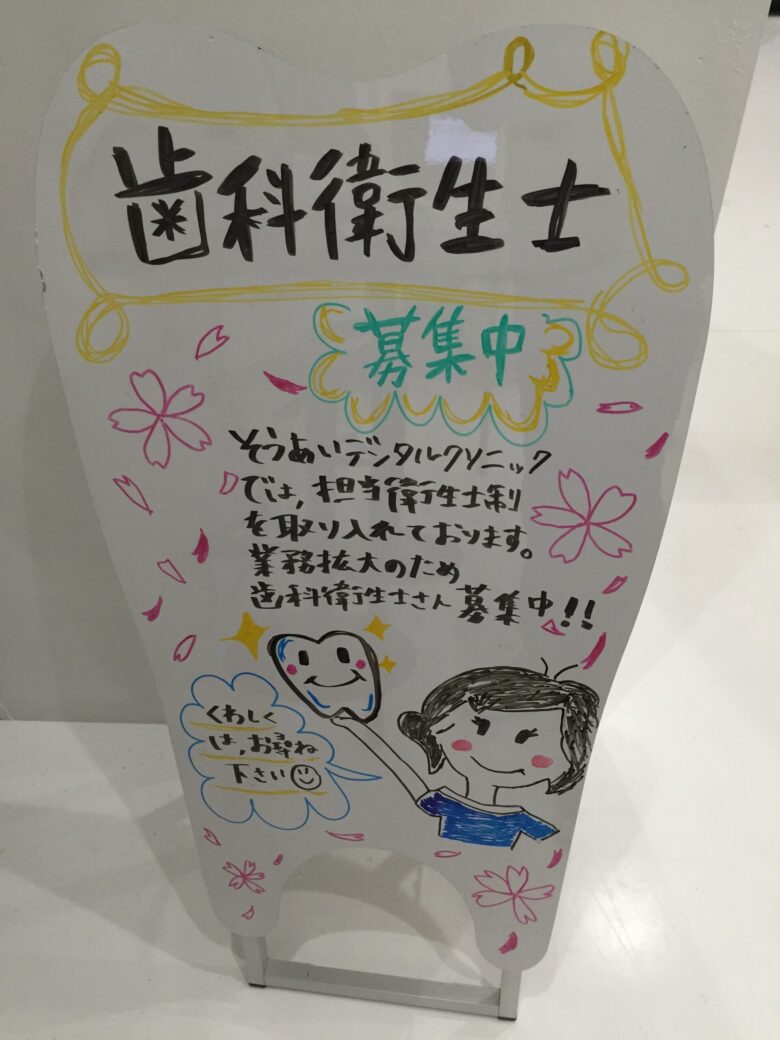 歯科衛生士
募集中
そうあいデジタルクリニック
では,担当衛生士制
を取り入れております。
業務拡大のため
歯科衛生士さん募集中!!
くわしく
は,お尋ね
下さい